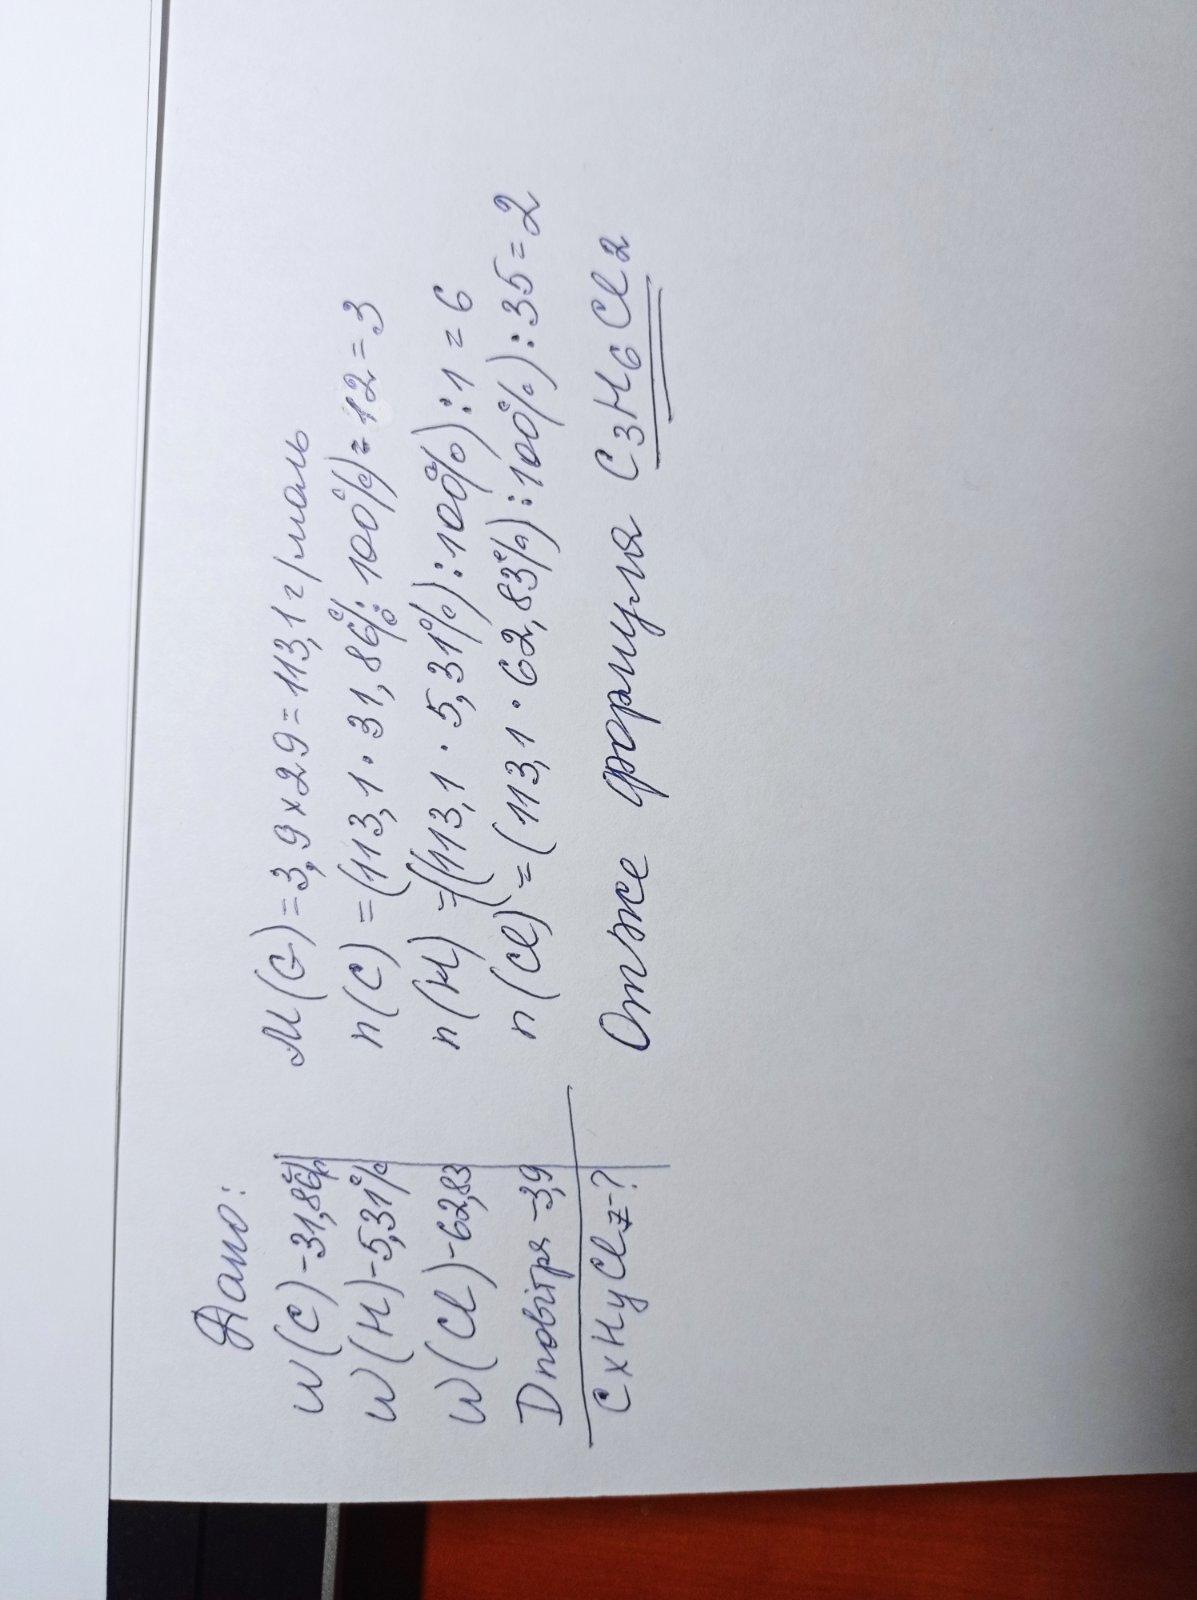 Дано:
W(C)-31,86%
W(H)-5,31%
W(Cl)-62,83
Dповітря-3,9
CxHyClz-?
M(G)=3,9×29=113,1г/моль
n(C)=(113,1·31,86%:100%):12=3
n(H)=((113,1·5,31%):100%):1=6
n(Cl)=(113,1·62,83%):100%):35=2
Отже формула C3H6Cl2